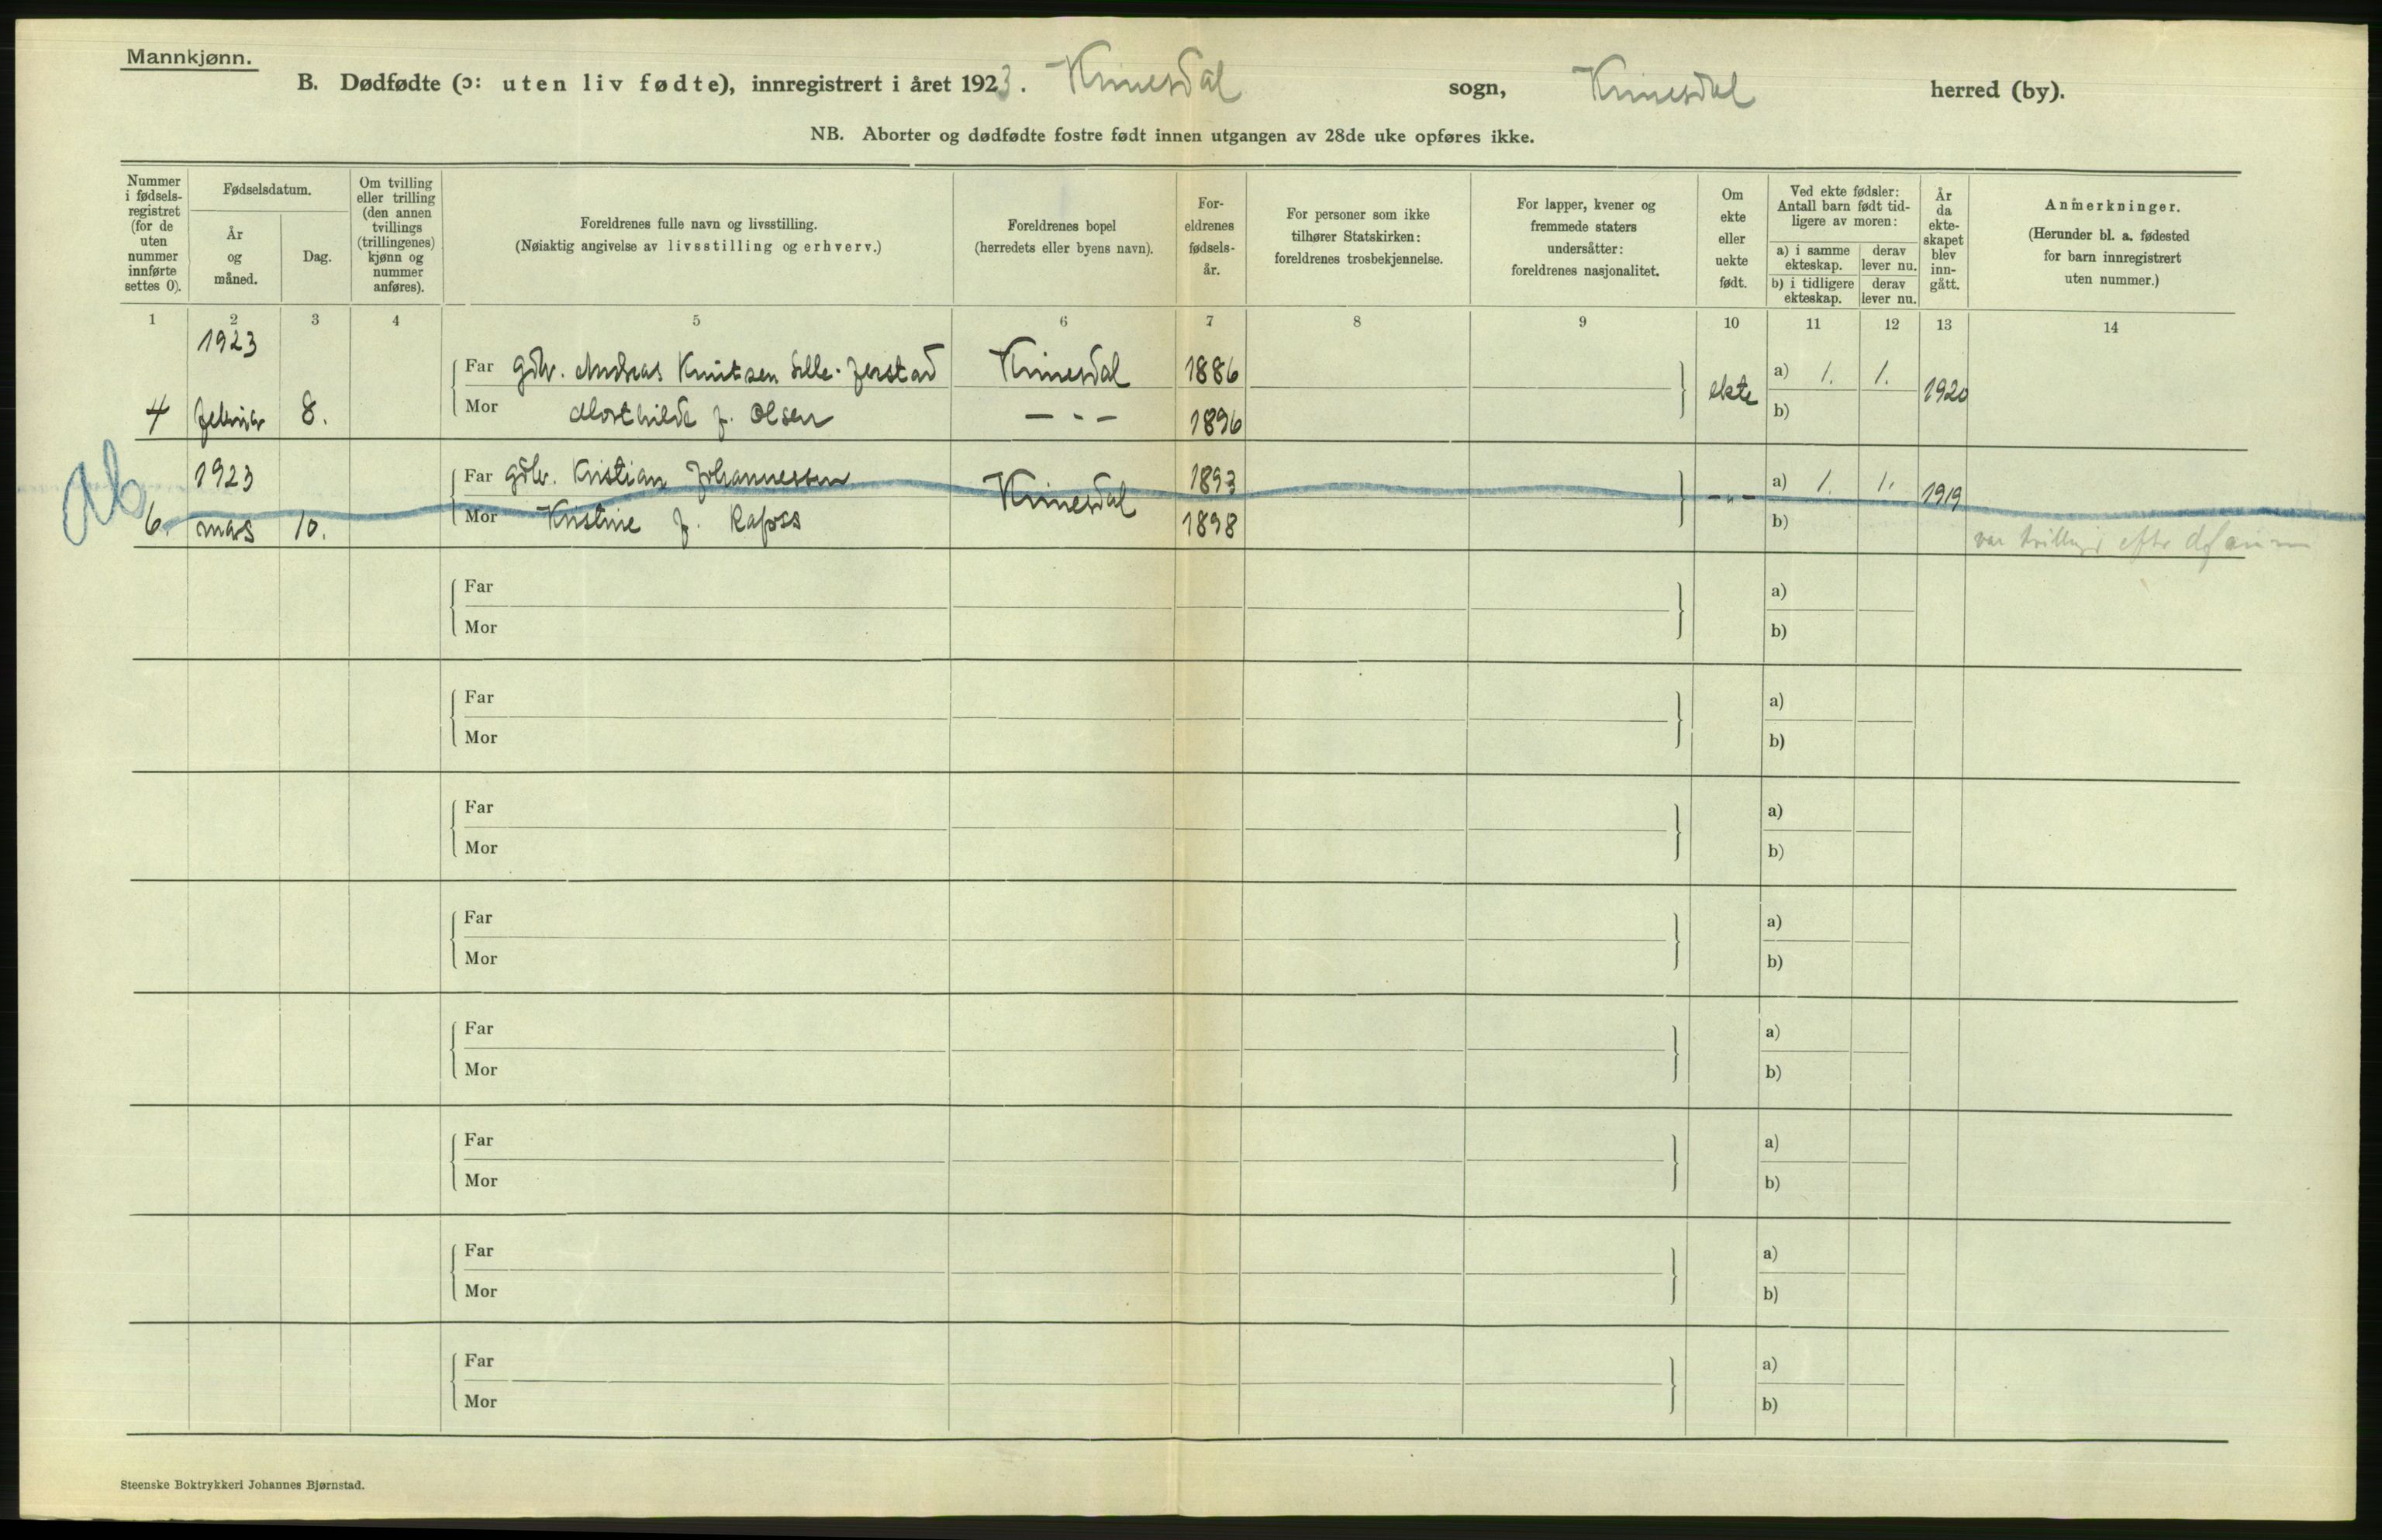 Mannkjønn.
B. Dødfødte (ɔ: uten liv fødte), innregistrert i året 1923. Kvinesdal sogn, Kvinesdal herred (by).
NB. Aborter og dødfødte fostre født innen utgangen av 28de uke opføres ikke.
Nummer i fødsels-registret (for de uten nummer innførte settes 0).
Fødselsdatum.
År og måned.
Dag.
Om tvilling eller trilling (den annen tvillings (trillingenes) kjønn og nummer anføres).
Foreldrenes fulle navn og livsstilling.
(Nøiaktig angivelse av livsstilling og erhverv.)
Foreldrenes bopel
(herredets eller byens navn).
For-eldrenes fødsels-år.
For personer som ikke tilhører Statskirken: foreldrenes trosbekjennelse.
For lapper, kvener og fremmede staters undersåtter: foreldrenes nasjonalitet.
Om ekte eller uekte født.
Ved ekte fødsler: Antall barn født tid-ligere av moren:
a) i samme ekteskap.
derav lever nu.
b) i tidligere ekteskap.
derav lever nu.
År da ekte-skapet blev inn-gått.
Anmerkninger.
(Herunder bl. a. fødested for barn innregistrert uten nummer.)
1 2 3 4 5 6 7 8 9 10 11 12 13 14
1923
Far Gdbr. Andreas Knutsen Kvinesdal 1886 a) 1. 1.
4 februar 8. Mor f. Olsen — " — 1896 ekte b) 1920
Ab
1923
Far Gdbr. Kristian Johannessen Kvinesdal 1893 a) 1. 1.
6. mars 10. Mor Kristine f. Rafoss 1898 — " — b) 1919
var tvilling efter
Far a)
Mor b)
Far a)
Mor b)
Far a)
Mor b)
Far a)
Mor b)
Far a)
Mor b)
Far a)
Mor b)
Far a)
Mor b)
Far a)
Mor b)
Steenske Boktrykkeri Johannes Bjørnstad.